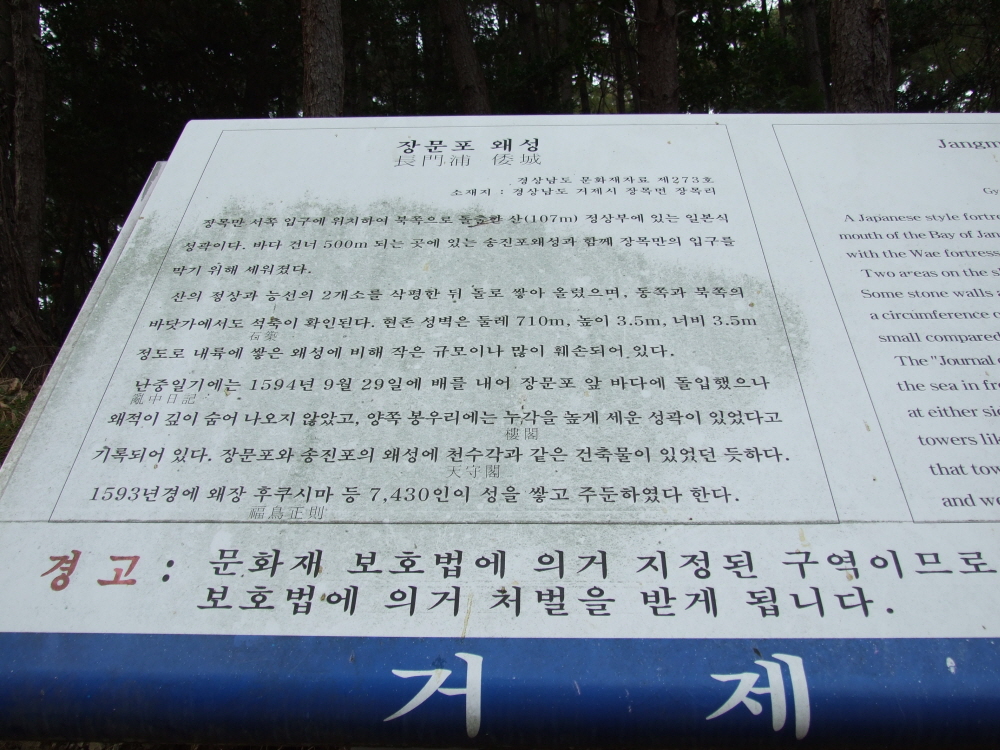 장문포 왜성
長門浦 倭城
경상남도 문화재자료 제273호
소재지 : 경상남도 거제시 장목면 장목리
장목만 서쪽 입구에 위치하여 북쪽으로 돌출한 산(107m) 정상부에 있는 일본식
성곽이다. 바다 건너 500m 되는 곳에 있는 송진포왜성과 함께 장목만의 입구를
막기 위해 세워졌다.
산의 정상과 능선의 2개소를 삭평한 뒤 돌로 쌓아 올렸으며, 동쪽과 북쪽의
바닷가에서도 석축이 확인된다. 현존 성벽은 둘레 710m, 높이 3.5m, 너비 3.5m
石築
정도로 내륙에 쌓은 왜성에 비해 작은 규모이나 많이 훼손되어 있다.
난중일기에는 1594년 9월 29일에 배를 내어 장문포 앞 바다에 돌입했으나
亂中日記
왜적이 깊이 숨어 나오지 않았고, 양쪽 봉우리에는 누각을 높게 세운 성곽이 있었다고
樓閣
기록되어 있다. 장문포와 송진포의 왜성에 천수각과 같은 건축물이 있었던 듯하다.
天守閣
1593년경에 왜장 후쿠시마 등 7,430인이 성을 쌓고 주둔하였다 한다.
福島正則
Jangm
Gy
A Japanese style fortr
mouth of the Bay of Jan
with the Wae fortress
Two areas on the s
Some stone walls
a circumference o
small compared
The "Journal
the sea in fr
at either sid
towers lik
that tow
and we
경고 : 문화재 보호법에 의거 지정된 구역이므로
보호법에 의거 처벌을 받게 됩니다.
거 제